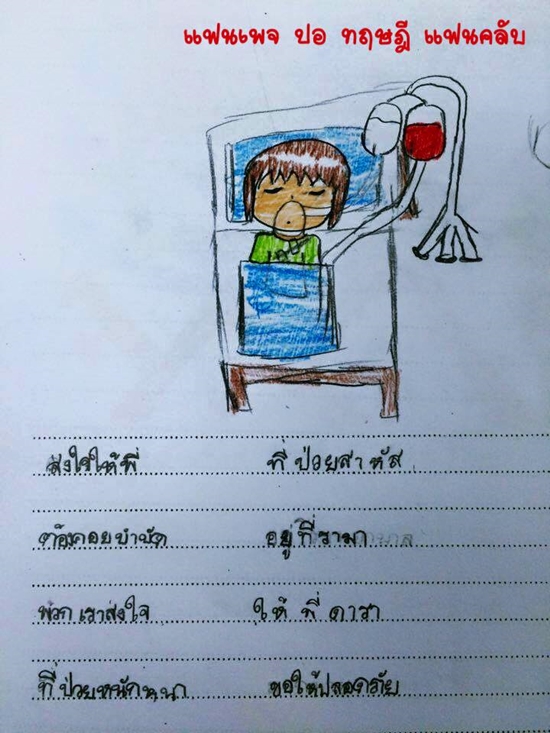 แฟนเพจ ปอ ทฤษฎี แฟนคลับ
ส่งใจให้พี่ ที่ป่วยสาหัส
ต้องคอยบำบัด อยู่ที่รามา
พวกเราส่งใจ ให้ พี่ ดารา
ที่ป่วยหนักหนา ขอให้ปลอดภัย